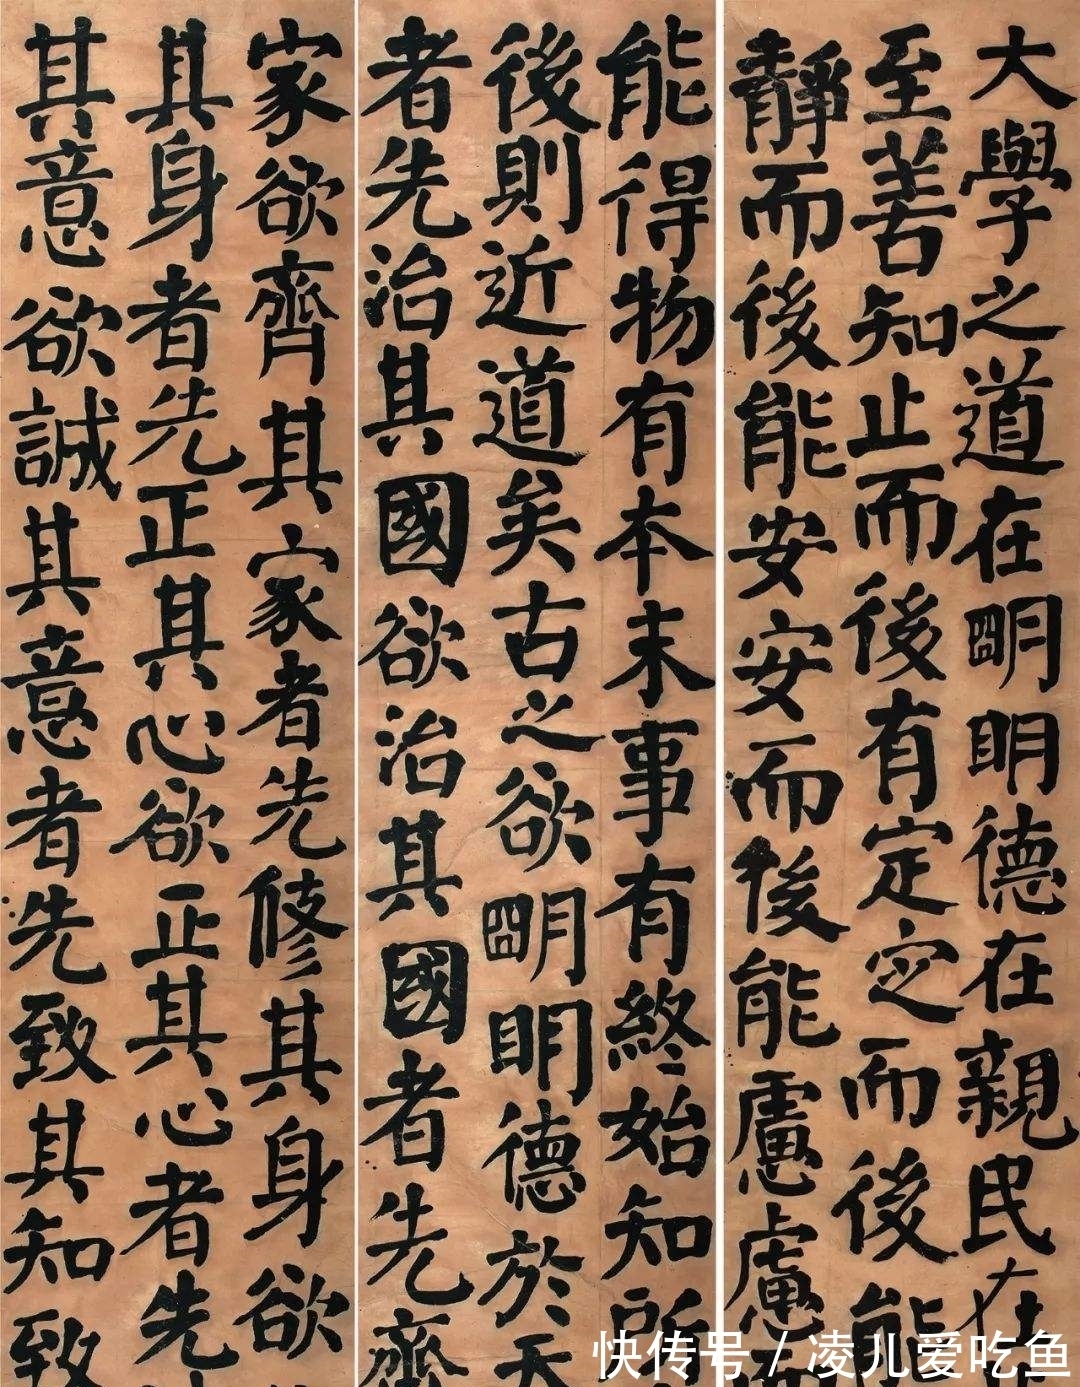 大學之道在朙明德在親民在
至善知止而後有定定而後能
靜而後能安安而後能慮慮而
能得物有本末事有終始知所
後則近道矣古之欲朙明德於天
者先治其國欲治其國者先齊
家欲齊其家者先修其身欲
其身者先正其心欲正其心者先
其意欲誠其意者先致其知致
快传号 / 凌儿爱吃鱼